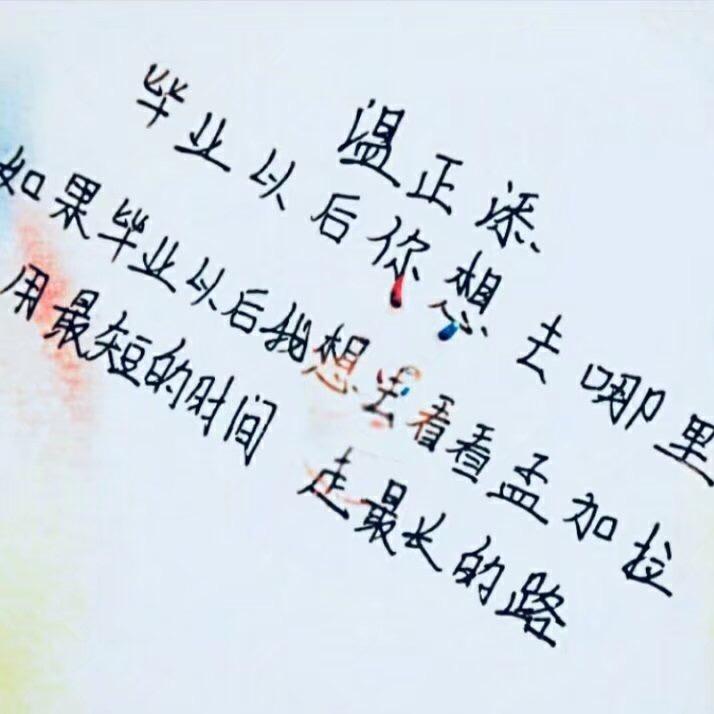 温正添
毕业以后你想去哪里
如果毕业以后我想去看看孟加拉
用最短的时间 走最长的路